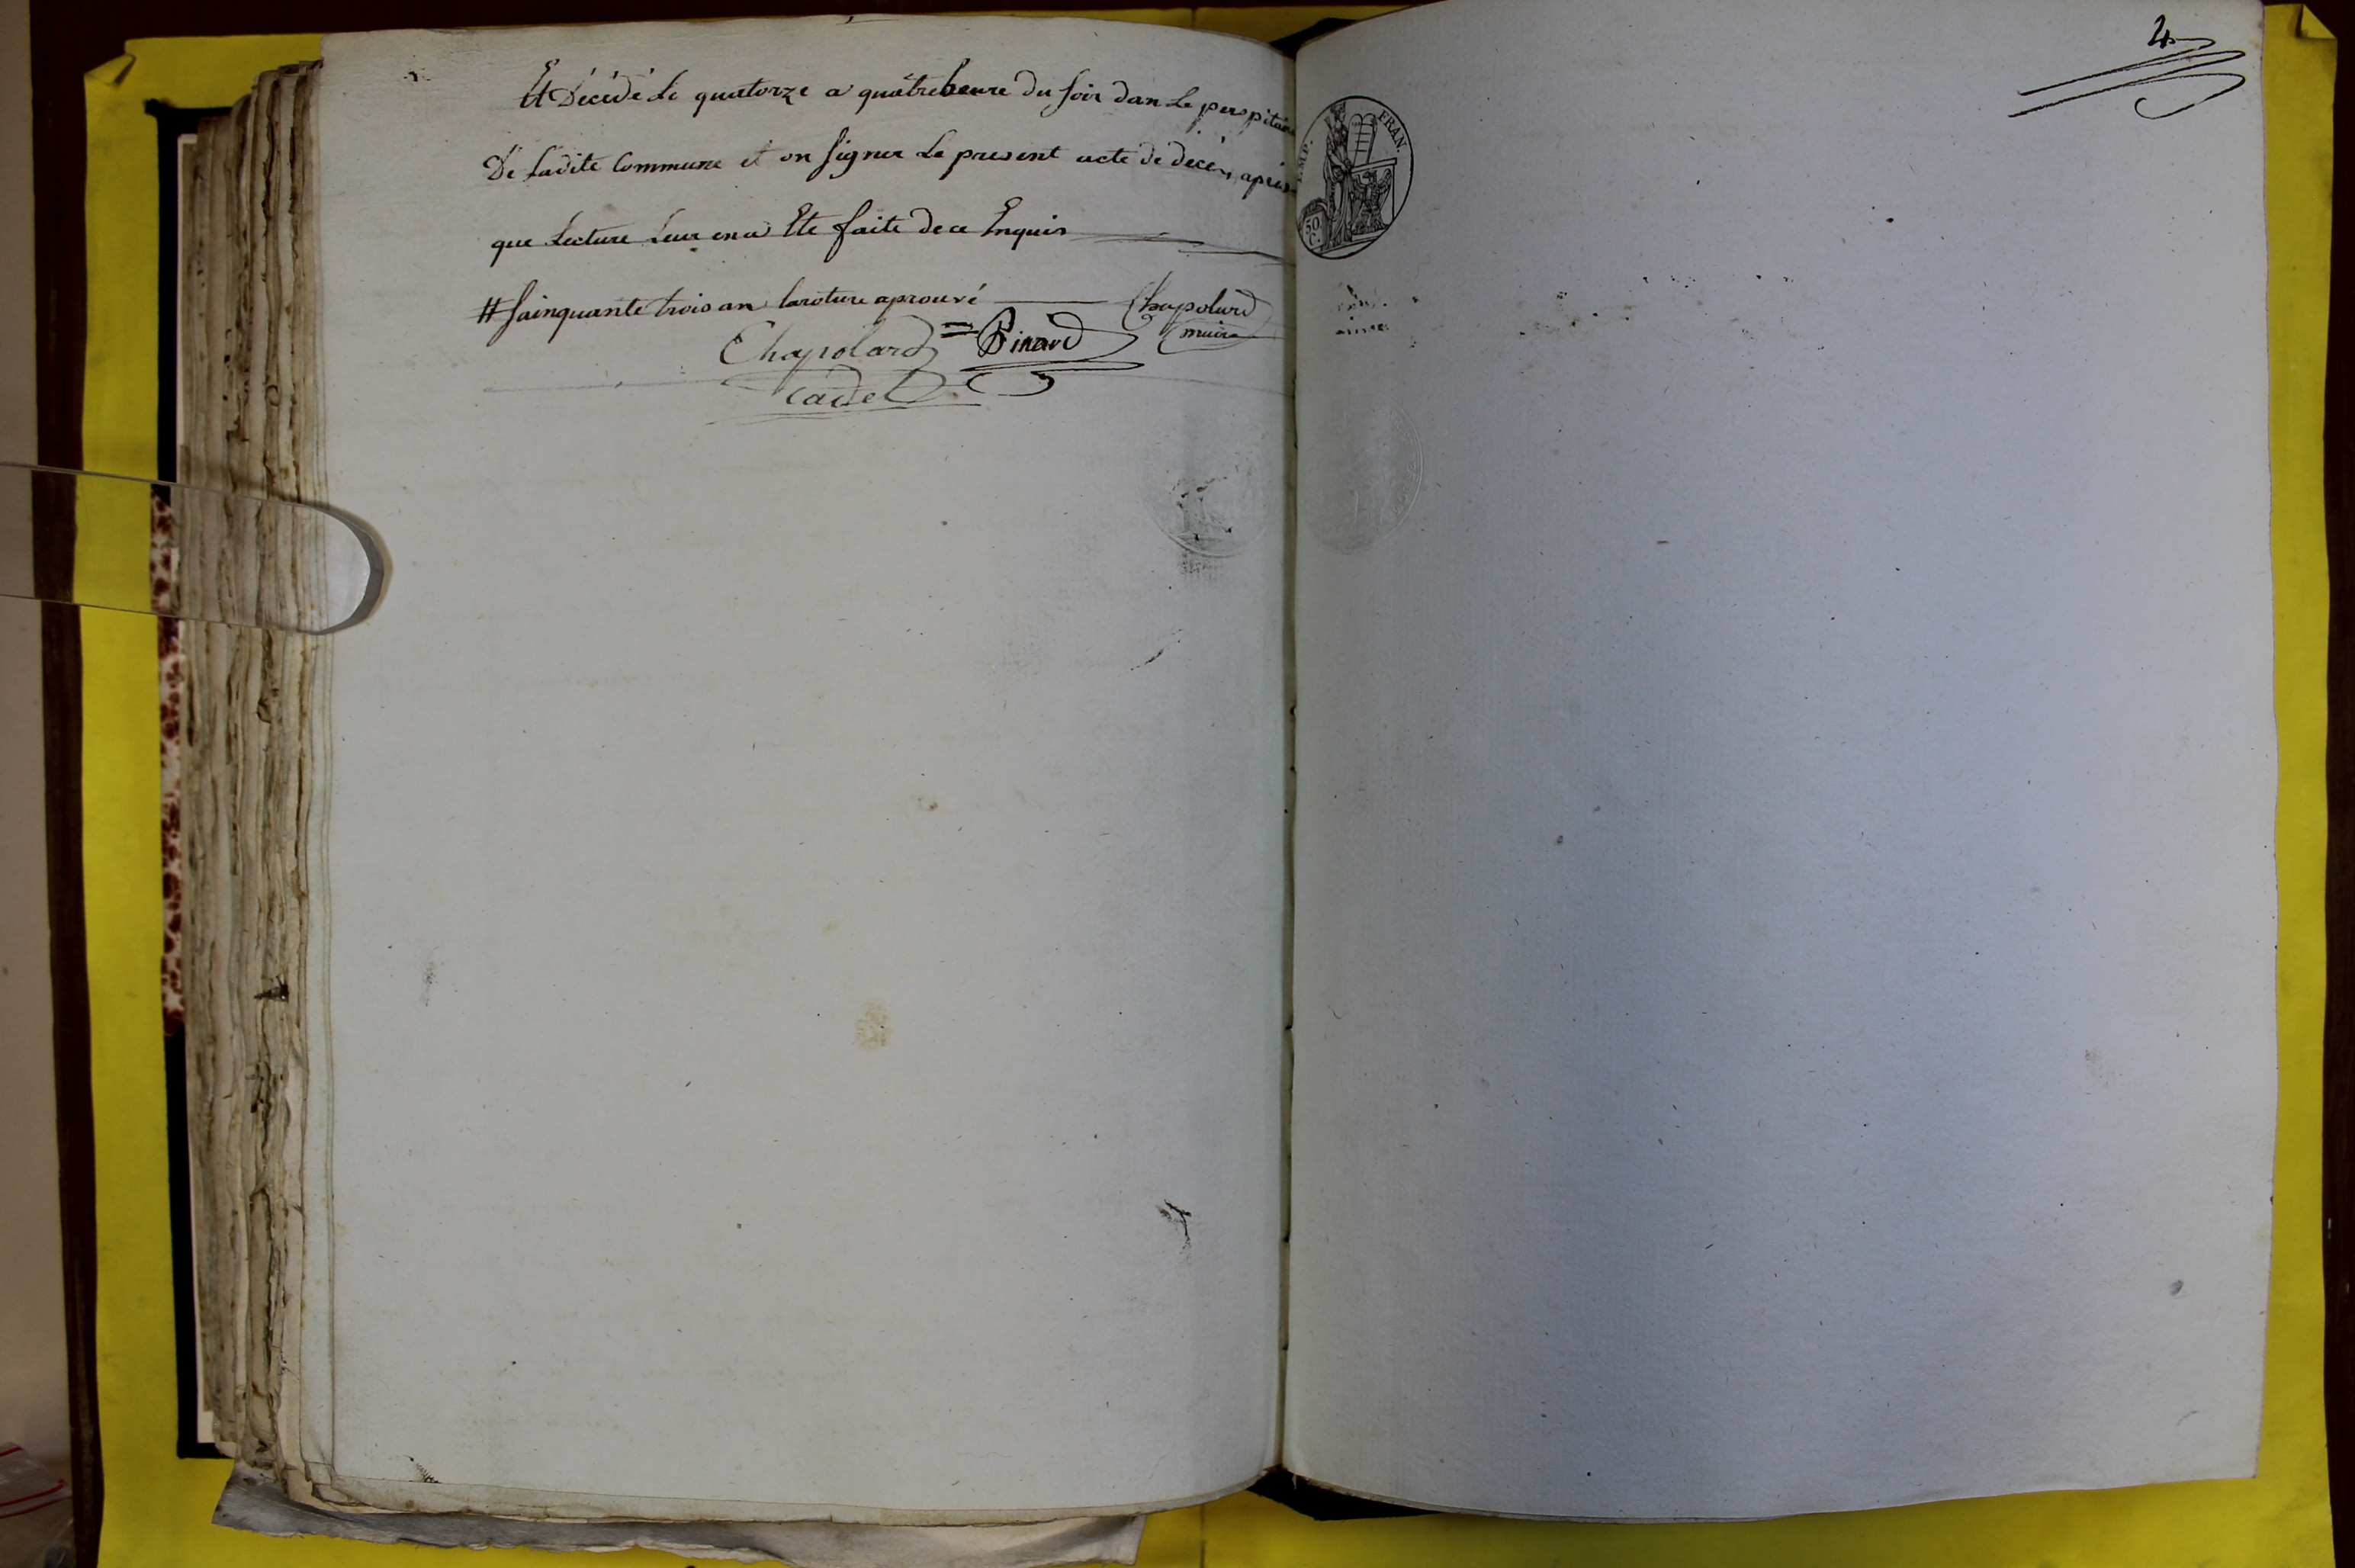 Et Décédé Le quatorze a quâtre heure du soir dan Le perspitaire
De Ladite Commune et on signer Le present acte de decés, après
que Lecture Leur en a Eté faite de ce Enquis
# sainquante trois an laroture aprouvé Chapolard
Chapolard = Binard maire
Cadet
4
EMP. FRAN.
50 C.